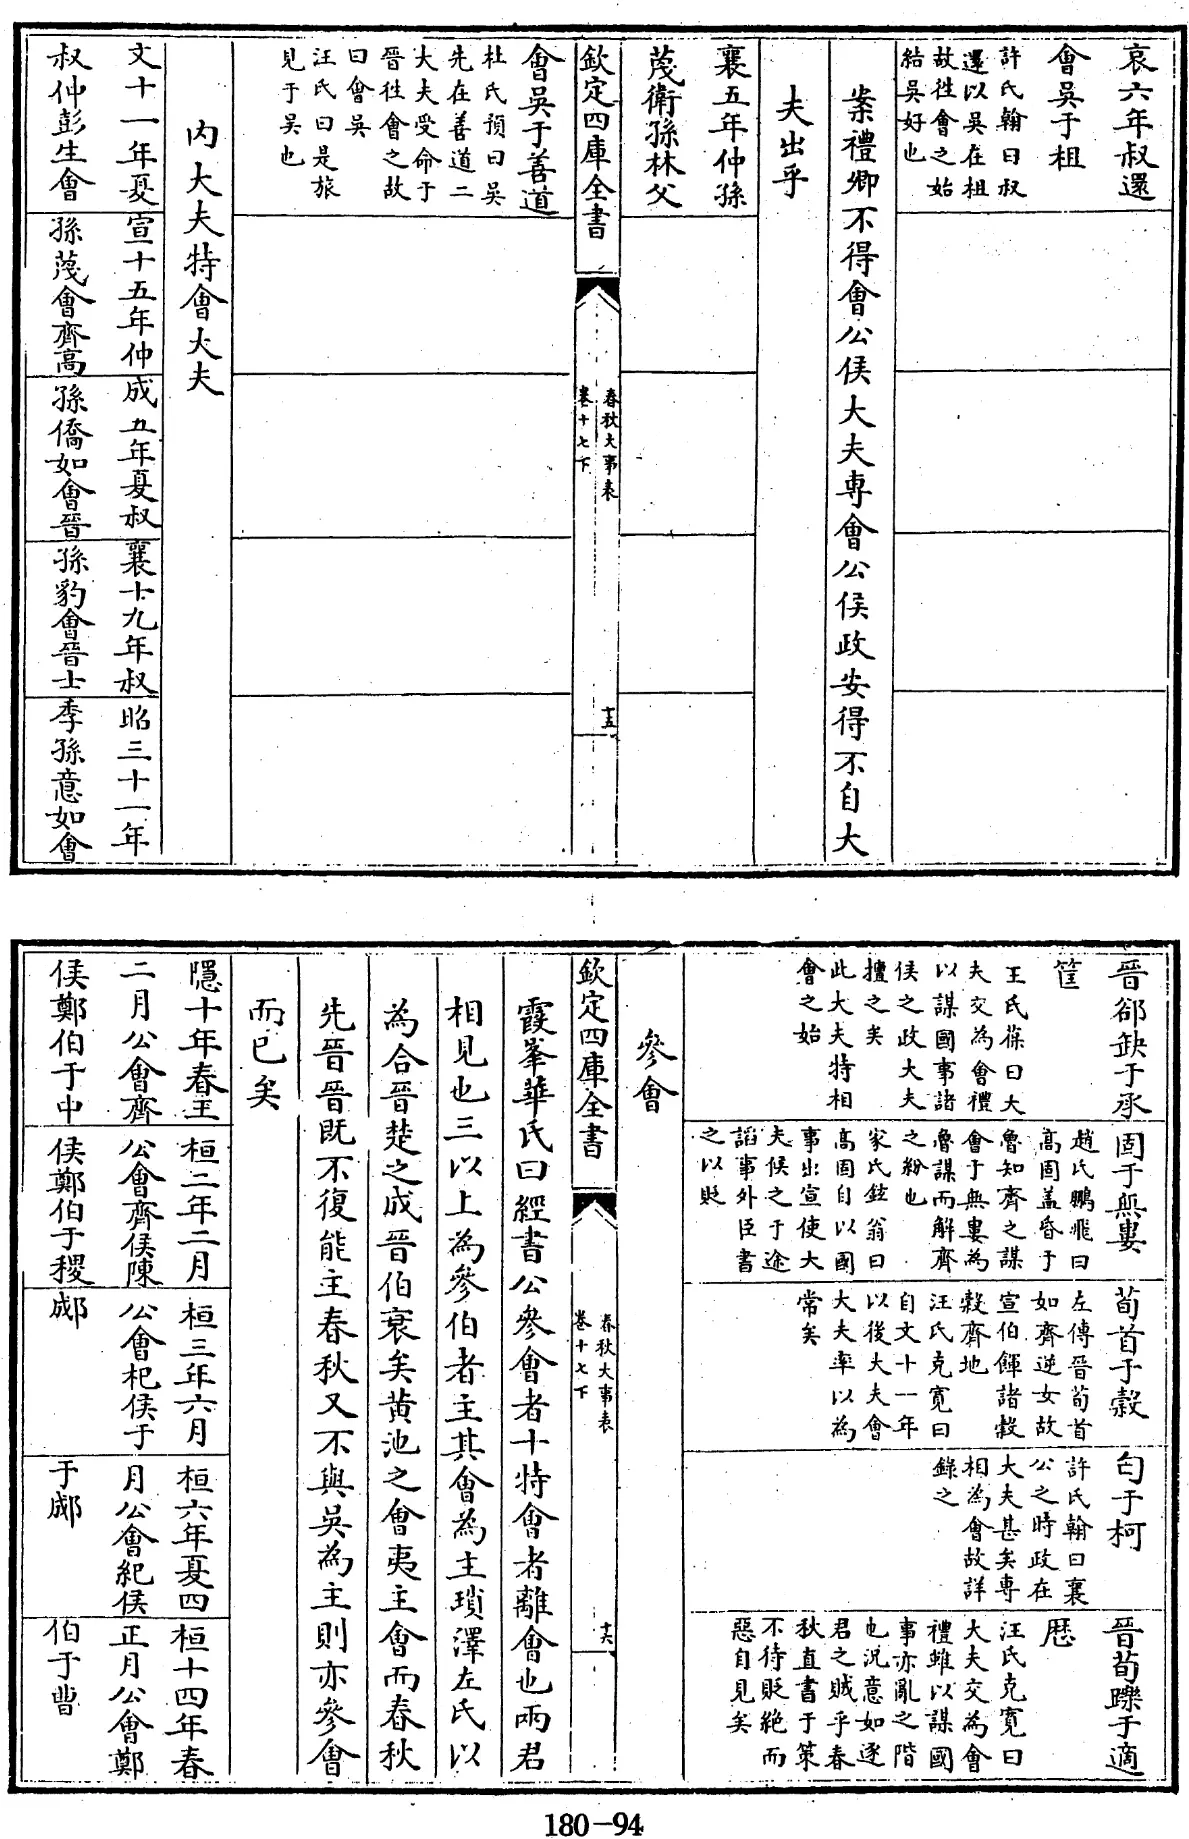 哀六年叔還
會吳于柤
許氏翰曰叔
還以吳在柤
故往會之始
結吳好也
案禮卿不得會公侯大夫専會公侯政安得不自大
夫出乎
襄五年仲孫
蔑衛孫林父
欽定四庫全書
春秋大事表
卷十七下
十五
會吳于善道
杜氏預曰吳
先在善道二
大夫受命于
晉往會之故
曰會吳
汪氏曰是旅
見于吳也
内大夫特會大夫
文十一年夏
叔仲彭生會
宣十五年仲
孫蔑會齊高
成五年夏叔
孫僑如會晉
襄十九年叔
孫豹會晉士
昭三十一年
季孫意如會
晉郤缺于承
筐
王氏葆曰大
夫交為會禮
以謀國事諸
侯之政大夫
擅之矣
此大夫特相
會之始
固于無婁
趙氏鵬飛曰
高固蓋昏于
魯知齊之謀
會于無婁為
魯謀而解齊
之紛也
家氏鉉翁曰
高固自以國
事出宣使大
夫候之于途
謟事外臣書
之以貶
荀首于榖
左傳晉荀首
如齊逆女故
宣伯餫諸榖
榖齊地
汪氏克寛曰
自文十一年
以後大夫會
大夫率以為
常矣
匄于柯
許氏翰曰襄
公之時政在
大夫甚矣専
相為會故詳
錄之
晉荀躒于適
厯
汪氏克寛曰
大夫交為會
禮雖以謀國
事亦亂之階
也況意如逐
君之賊乎春
秋直書于策
不待貶絶而
惡自見矣
參會
欽定四庫全書
春秋大事表
卷十七下
十六
霞峯華氏曰經書公參會者十特會者離會也兩君
相見也三以上為參伯者主其會為主瑣澤左氏以
為合晉楚之成晉伯衰矣黄池之會夷主會而春秋
先晉晉既不復能主春秋又不與吳為主則亦參會
而已矣
隱十年春王
二月公會齊
侯鄭伯于中
桓二年二月
公會齊侯陳
侯鄭伯于稷
桓三年六月
公會杞侯于
郕
桓六年夏四
月公會紀侯
于郕
桓十四年春
正月公會鄭
伯于曹
180-94